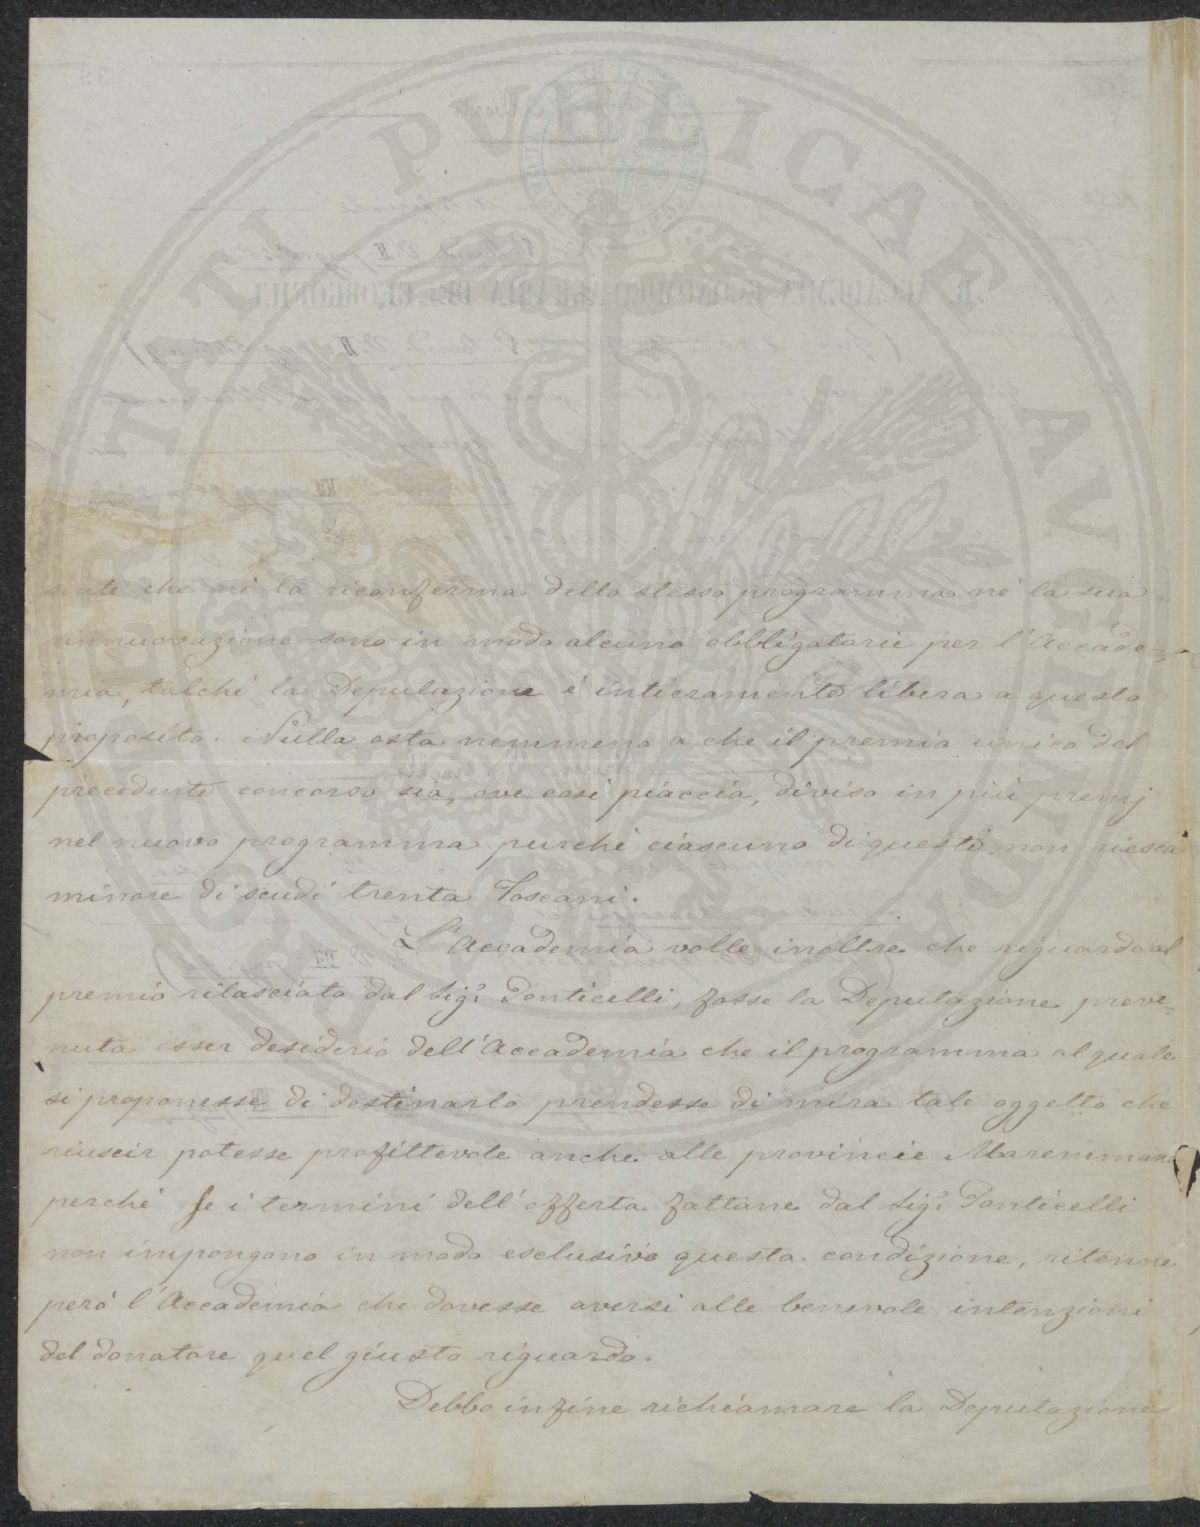 PROSPERITATI PUBLICAE AUGENDAE
sente che nè la riconferma dello stesso programma nè la sua
rinnuovazione sono in modo alcuno obbligatorie per l'Accade=
mia, talchè la Deputazione è intieramente libera a questo
proposito. Nulla osta nemmeno a che il premio unico del
precedente concorso sia, ove così piaccia, diviso in più premj
nel nuovo programma purchè ciascuno di questi non riesca
minore di scudi trenta Toscani.
L'Accademia volle inoltre che riguardo al
premio rilasciato dal Sig.r Ponticelli, fosse la Deputazione preve=
nuta esser desiderio dell'Accademia che il programma al quale
si proponesse di destinarlo prendesse di mira tale oggetto che
riuscir potesse profittevole anche alle provincie Maremmane
perchè se i termini dell'offerta fattane dal Sig.r Ponticelli
non impongono in modo esclusivo questa condizione, ritenne
però l'Accademia che dovesse aversi alle benevole intenzioni
del donatore quel giusto riguardo.
Debbo infine richiamare la Deputazione